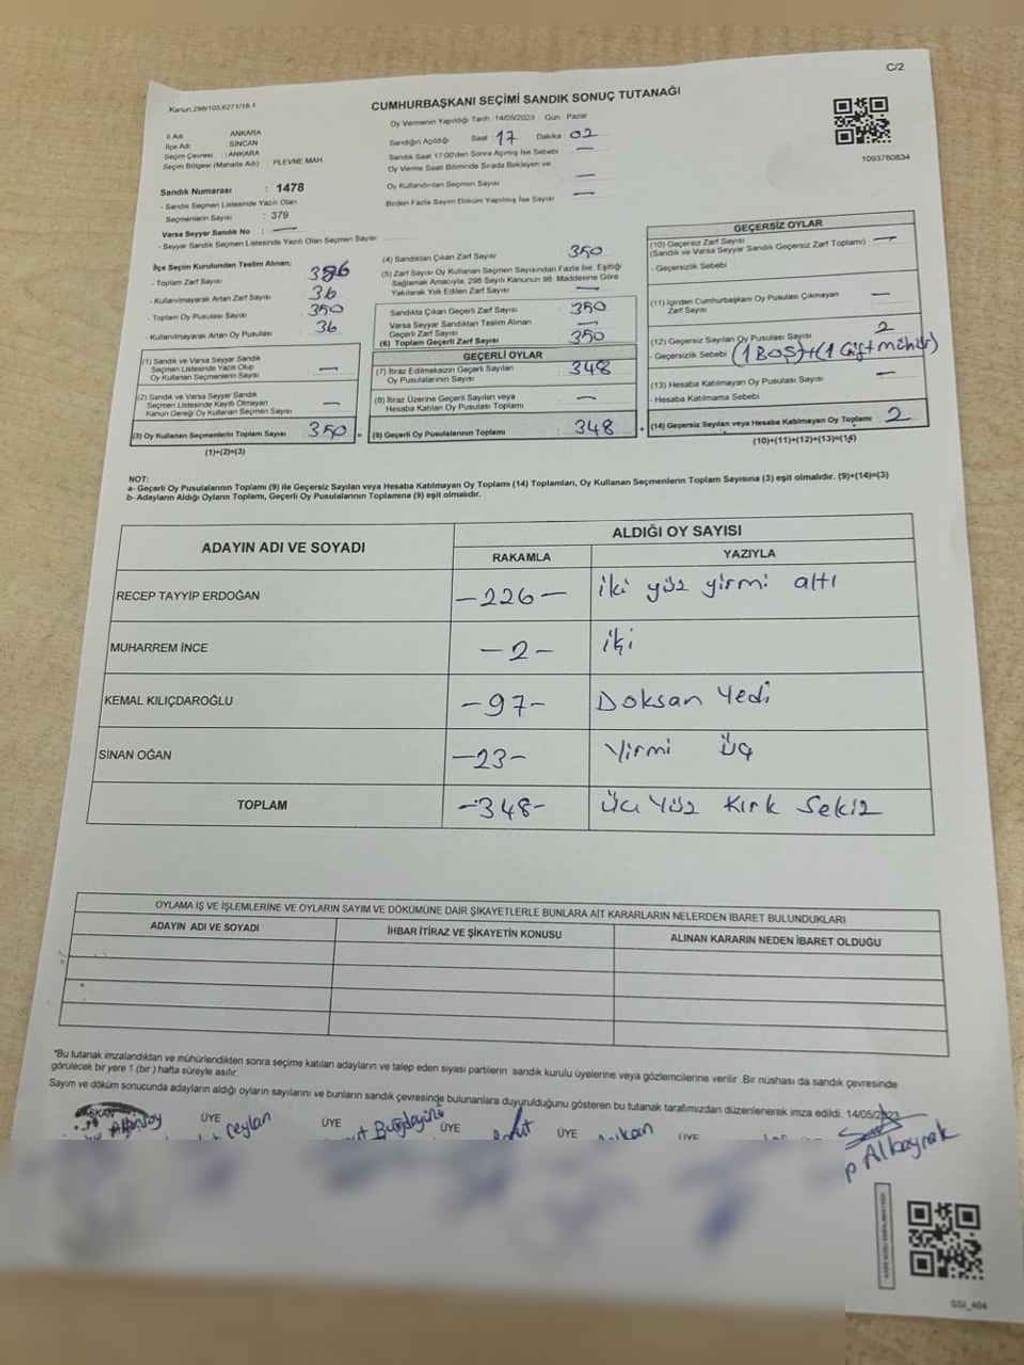 C/2
Kanun:298/103,6271/18.1
CUMHURBAŞKANI SEÇİMİ SANDIK SONUÇ TUTANAĞI
Oy Vermenin Yapıldığı Tarih :14/05/2023 Gün: Pazar
İl Adı : ANKARA
İlçe Adı : SİNCAN
Seçim Çevresi : ANKARA
Seçim Bölgesi (Mahalle Adı) : PLEVNE MAH.
Sandığın Açıldığı Saat 17 Dakika : 02
Sandık Saat 17:00'den Sonra Açılmış İse Sebebi —
Oy Verme Saati Bitiminde Sırada Bekleyen ve
Oy Kullandırılan Seçmen Sayısı —
Birden Fazla Sayım Döküm Yapılmış İse Sayısı —
1093760834
Sandık Numarası : 1478
- Sandık Seçmen Listesinde Yazılı Olan
Seçmenlerin Sayısı : 379
Varsa Seyyar Sandık No : —
- Seyyar Sandık Seçmen Listesinde Yazılı Olan Seçmen Sayısı
İlçe Seçim Kurulundan Teslim Alınan:
- Toplam Zarf Sayısı 386
- Kullanılmayarak Artan Zarf Sayısı 36
- Toplam Oy Pusulası Sayısı 350
- Kullanılmayarak Artan Oy Pusulası 36
(1) Sandık ve Varsa Seyyar Sandık
Seçmen Listesinde Yazılı Olup
Oy Kullanan Seçmenlerin Sayısı —
(2) Sandık ve Varsa Seyyar Sandık
Seçmen Listesinde Kayıtlı Olmayan
Kanun Gereği Oy Kullanan Seçmen Sayısı —
(3) Oy Kullanan Seçmenlerin Toplam Sayısı 350
(1)+(2)=(3)
(4) Sandıktan Çıkan Zarf Sayısı 350
(5) Zarf Sayısı Oy Kullanan Seçmen Sayısından Fazla İse, Eşitliği
Sağlamak Amacıyla, 298 Sayılı Kanunun 98. Maddesine Göre
Yakılarak Yok Edilen Zarf Sayısı —
Sandıkta Çıkan Geçerli Zarf Sayısı 350
Varsa Seyyar Sandıktan Teslim Alınan
Geçerli Zarf Sayısı —
(6) Toplam Geçerli Zarf Sayısı 350
GEÇERLİ OYLAR
(7) İtiraz Edilmeksizin Geçerli Sayılan
Oy Pusulalarının Sayısı 348
(8) İtiraz Üzerine Geçerli Sayılan veya
Hesaba Katılan Oy Pusulası Toplamı —
(9) Geçerli Oy Pusulalarının Toplamı 348
GEÇERSİZ OYLAR
(10) Geçersiz Zarf Sayısı
(Sandık ve Varsa Seyyar Sandık Geçersiz Zarf Toplamı) —
- Geçersizlik Sebebi
(11) İçinden Cumhurbaşkanı Oy Pusulası Çıkmayan
Zarf Sayısı —
(12) Geçersiz Sayılan Oy Pusulası Sayısı 2
- Geçersizlik Sebebi (1 BOŞ)+(1 Çift mühür)
(13) Hesaba Katılmayan Oy Pusulası Sayısı —
- Hesaba Katılmama Sebebi
(14) Geçersiz Sayılan veya Hesaba Katılmayan Oy Toplamı 2
(10)+(11)+(12)+(13)=(14)
NOT:
a- Geçerli Oy Pusulalarının Toplamı (9) ile Geçersiz Sayılan veya Hesaba Katılmayan Oy Toplamı (14) Toplamları, Oy Kullanan Seçmenlerin Toplam Sayısına (3) eşit olmalıdır. (9)+(14)=(3)
b- Adayların Aldığı Oyların Toplamı, Geçerli Oy Pusulalarının Toplamına (9) eşit olmalıdır.
ADAYIN ADI VE SOYADI ALDIĞI OY SAYISI
RAKAMLA YAZIYLA
RECEP TAYYİP ERDOĞAN -226- iki yüz yirmi altı
MUHARREM İNCE -2- iki
KEMAL KILIÇDAROĞLU -97- Doksan Yedi
SİNAN OĞAN -23- Yirmi Üç
TOPLAM -348- Üç Yüz Kırk Sekiz
OYLAMA İŞ VE İŞLEMLERİNE VE OYLARIN SAYIM VE DÖKÜMÜNE DAİR ŞİKAYETLERLE BUNLARA AİT KARARLARIN NELERDEN İBARET BULUNDUKLARI
ADAYIN ADI VE SOYADI İHBAR İTİRAZ VE ŞİKAYETİN KONUSU ALINAN KARARIN NEDEN İBARET OLDUĞU
*Bu tutanak imzalandıktan ve mühürlendikten sonra seçime katılan adayların ve talep eden siyasi partilerin sandık kurulu üyelerine veya gözlemcilerine verilir. Bir nüshası da sandık çevresinde
görülecek bir yere 1 (bir) hafta süreyle asılır.
Sayım ve döküm sonucunda adayların aldığı oyların sayılarını ve bunların sandık çevresinde bulunanlara duyurulduğunu gösteren bu tutanak tarafımızdan düzenlenerek imza edildi. 14/05/2023
BAŞKAN ÜYE ÜYE ÜYE ÜYE ÜYE
Ceylan
Albayrak
SSI_404